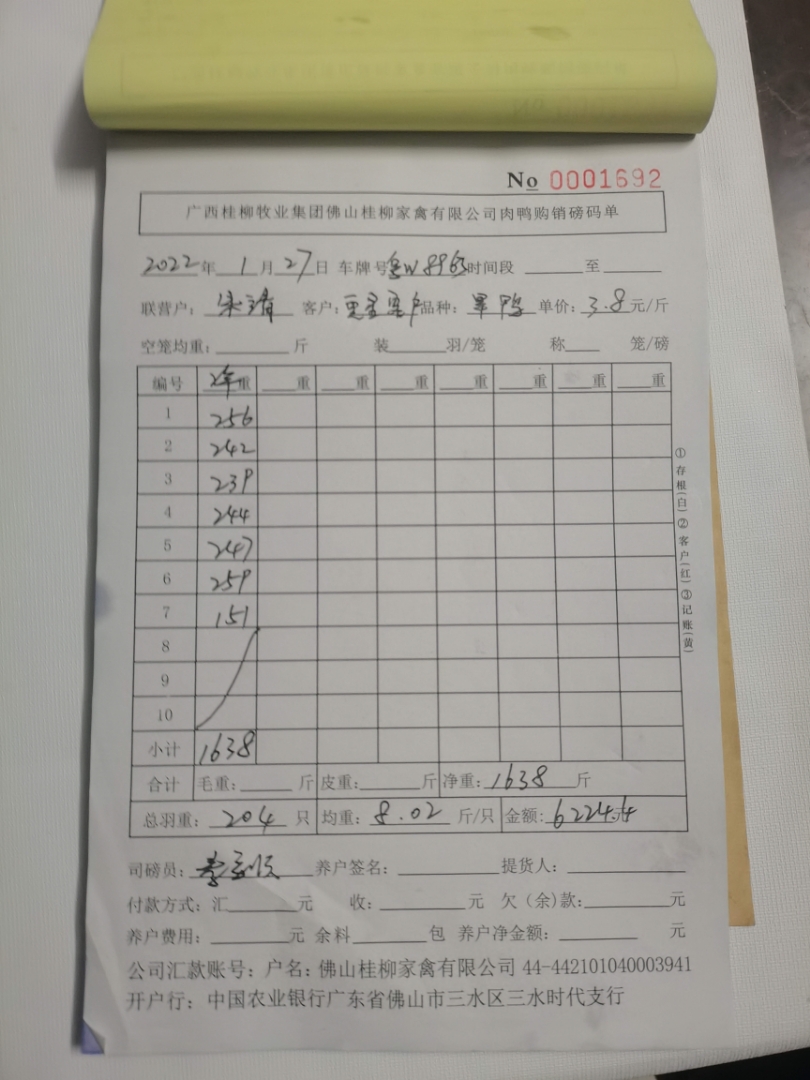 No 0001692
广西桂柳牧业集团佛山桂柳家禽有限公司肉鸭购销磅码单
2022年 1月 27日 车牌号 粤W8963 时间段 至
联营户： 客户： 客户 品种： 单价：3.8元/斤
空笼均重： 斤 装 羽/笼 称 笼/磅
编号 重 重 重 重 重 重 重 重
1 256
2 242
3 239
4 244
5 247
6 259
7 151
8
9
10
小计 1638
合计 毛重： 斤 皮重： 斤 净重：1638 斤
总羽重：204 只 均重：8.02 斤/只 金额：6224.4
司磅员：李 养户签名： 提货人：
付款方式：汇 元 收： 元 欠（余)款： 元
养户费用： 元 余料 包 养户净金额： 元
公司汇款账号：户名：佛山桂柳家禽有限公司 44-442101040003941
开户行：中国农业银行广东省佛山市三水区三水时代支行
①存根(白)②客户(红)③记账(黄)